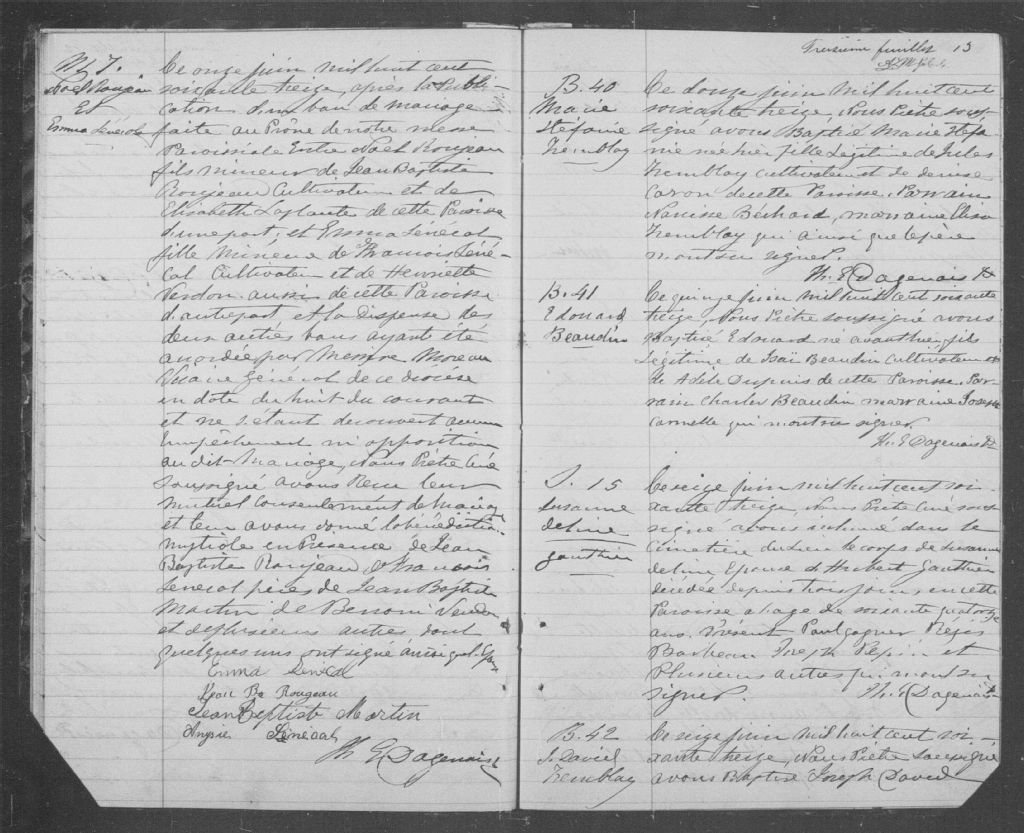 M. 7.
Noel Roujeau
Et
Emma Sénécal
Ce onze juin mil huit cent
soixante treize, après la Publi-
cation d'un ban de mariage
faite au Prône de notre messe
Paroissiale Entre Noel Roujeau
fils mineur de Jean Baptiste
Roujeau Cultivateur et de
Elisabeth Laplante de cette Paroisse
d'une part, et Emma Sénécal
fille Mineure de Francois Séné-
cal Cultivateur et de Henriette
Verdon aussi de cette Paroisse
d'autre part et la dispense des
deux autres bans ayant été
accordée par Messire Moreau
Vicaire Général de ce diocèse
en date du huit du courant
et ne s'étant decouvert aucun
Empêchement ni opposition
au dit Mariage, Nous Prêtre Curé
soussigné avons Recu leur
mutuel Consentement de Mariage
et leur avons donné la bénédiction
nuptiale en Présence de Jean
Baptiste Roujeau & Francois
Senecal pères de Jean Baptiste
Martin de Benoni Verdon
et de plusieurs autres dont
quelques uns ont signé ainsi que l'Epouse
Emma Senecal
Jean Bte Rougeau
Jean Baptiste Martin
Senecal
Th. E. Dagenais Ptr
Treizième feuillet 13
B. 40
Marie
Stéfanie
Tremblay
Ce douze juin Mil huit cent
soixante treize, Nous Prêtre sous-
signé avons Baptisé Marie Stefa-
nie née hier fille Légitime de Jules
Tremblay Cultivateur et de denise
Caron de cette Paroisse. Parrain
Narcisse Béchard, marraine Elisa
Tremblay qui ainsi que le père
n'ont su signer.
Th. E. Dagenais Ptr
B. 41
Edouard
Beaudin
Ce quinze juin Mil huit cent soixante
treize, Nous Prêtre soussigné avons
Baptisé Edouard né avant hier, fils
Légitime de Isaï Beaudin Cultivateur et
de Adèle Dupuis de cette Paroisse. Par-
rain Charles Beaudin marraine Joseph
qui n'ont su signer.
Th. E. Dagenais Ptr
S. 15
Susanne
deline
gauthier
Ce seize juin mil huit cent soi-
xante treize, Nous Prêtre Curé sous-
signé avons inhumé dans le
Cimetière du Lieu le corps de Susanne
deline Epouse d' Hubert Gauthier
décédée depuis trois jours, en cette
Paroisse a l'age de soixante quatorze
ans. Présent Paul gagner Régis
Barbeau Joseph Pepin et
Plusieurs autres qui n'ont su
signer.
Th. E. Dagenais Ptr
B. 42
J. David
Tremblay
Ce seize juin mil huit cent soi-
xante treize, Nous Prêtre soussigné
avons Baptisé Joseph David